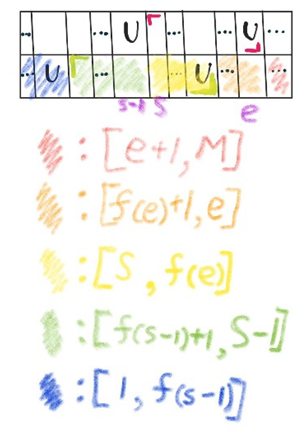 ... ... U ... U ...
... U ... ... U ... ...
s-1 s e
: [e+1, M]
: [f(e)+1, e]
: [S, f(e)]
: [f(s-1)+1, S-1]
: [1, f(s-1)]